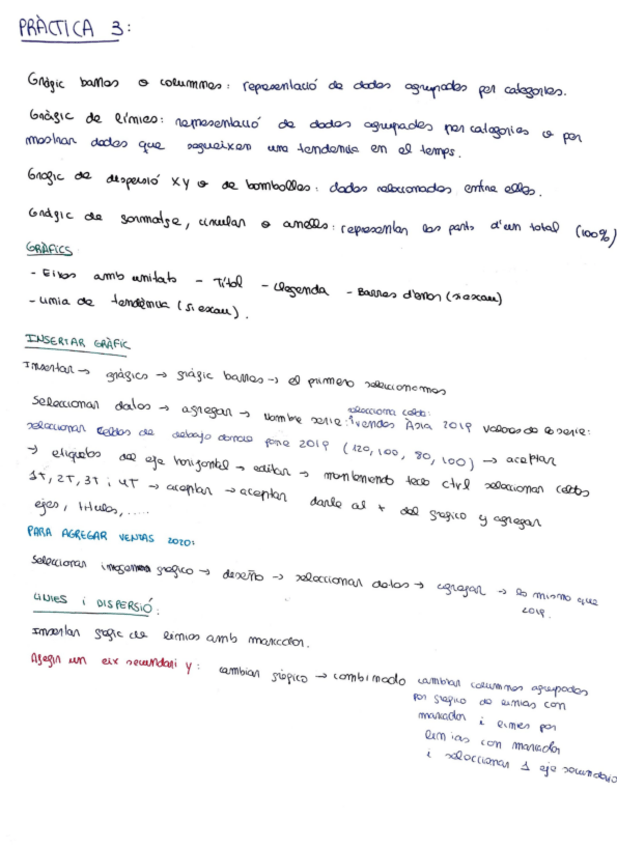 PRÀCTICA 3:
Gràfic barres o columnes: representació de dades agrupades per categories.
Gràfic de línies: representació de dades agrupades per categories o per
mostrar dades que segueixen una tendencia en el temps.
Grafic de dispersió XY o de bombolles: dades relacionades entre elles.
Gràfic de formatge, circular o anells: representen les parts d'un total (100%)
GRÀFICS
- Eixos amb unitats - Títol - Llegenda - Barres d'error (si escau)
- Linia de tendència (si escau).
INSERTAR GRÀFIC
Insertar → gráfico → gráfic barres → el primero seleccionamos
Seleccionar datos → agregar → Nombre serie: selecciona celda: vendes Àsia 2019 valores de la serie:
seleccionar celdas de debajo donde pone 2019 (120, 100, 80, 100) → aceptar
→ etiquetas del eje horizontal → editar → manteniendo tecla ctrl seleccionar celdas
1T, 2T, 3T i 4T → aceptar → aceptar darle al + del grafico y agregar
ejes, titulos, .....
PARA AGREGAR VENTAS 2020:
Seleccionar grafico → diseño → seleccionar datos → agregar → lo mismo que
2019.
LINIES I DISPERSIÓ:
Insertar grafic de linies amb marcador.
Afegir un eix secundari y: cambiar gráfico → combinado cambiar columnas agrupadas
por grafico de linias con
marcador i linies por
linias con marcador
i seleccionar 1 eje secundario